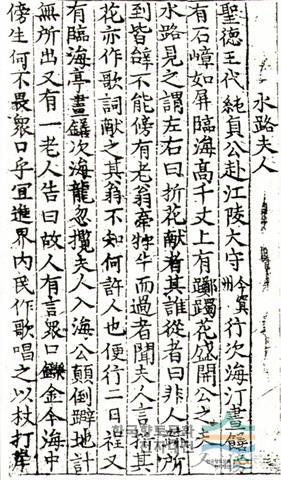 水路夫人
聖德王代純貞公赴江陵大守今冥州行次海汀晝饍傍
有石嶂如屏臨海高千丈上有躑躅花盛開公之夫人
水路見之謂左右曰折花献者其誰從者曰非人跡所
到皆辝不能傍有老翁牽牸牛而過者聞夫人言折其
花亦作歌詞献之其翁不知何許人也便行二日程又
有臨海亭晝饍次海龍忽攬夫人入海公顛倒躃地計
無所出又有一老人告曰故人有言衆口鑠金今海中
傍生何不畏衆口乎宜進界内民作歌唱之以杖打岸